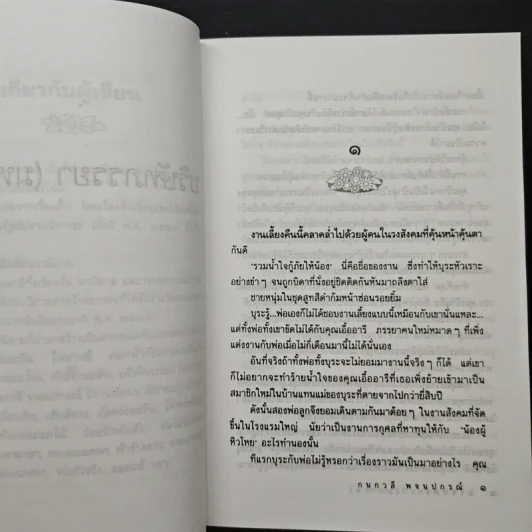 ๑
งานเลี้ยงคืนนี้คลาคล่ำไปด้วยผู้คนในวงสังคมที่คุ้นหน้าคุ้นตา
กันดี
'รวมน้ำใจกู้ภัยให้น้อง' นี่คือชื่อของงาน ซึ่งทำให้บุระหัวเราะ
อย่างขำๆ จนถูกบิดาที่นั่งอยู่ชิดติดกันหันมาถลึงตาใส่
ชายหนุ่มในชุดสูทสีดำก้มหน้าซ่อนรอยยิ้ม
บุระรู้...พ่อเองก็ไม่ได้ชอบงานเลี้ยงแบบนี้เหมือนกับเขานั่นแหละ...
แต่ทั้งพ่อทั้งเขาขัดไม่ได้กับคุณเอื้ออารี ภรรยาคนใหม่หมาดๆ ที่เพิ่ง
แต่งงานกับพ่อเมื่อไม่กี่เดือนมานี้ได้นั่นเอง
อันที่จริงถ้าทั้งพ่อทั้งบุระจะไม่ยอมมางานนี้จริงๆ ก็ได้ แต่เขา
ก็ไม่อยากจะทำร้ายน้ำใจของคุณเอื้ออารีที่เธอเพิ่งย้ายเข้ามาเป็น
สมาชิกใหม่ในบ้านแทนแม่ของบุระที่ตายจากไปกว่ายี่สิบปี
ดังนั้นสองพ่อลูกจึงยอมเดินตามกันมาต้อยๆ ในงานสังคมที่จัด
ขึ้นในโรงแรมใหญ่ นัยว่าเป็นงานการกุศลที่หาทุนให้กับ 'น้องผู้
หิวโหย' อะไรทำนองนั้น
ที่แรกบุระกับพ่อไม่รู้หรอกว่าเรื่องราวมันเป็นมาอย่างไร คุณ
กนกวลี พจนปกรณ์ ๑